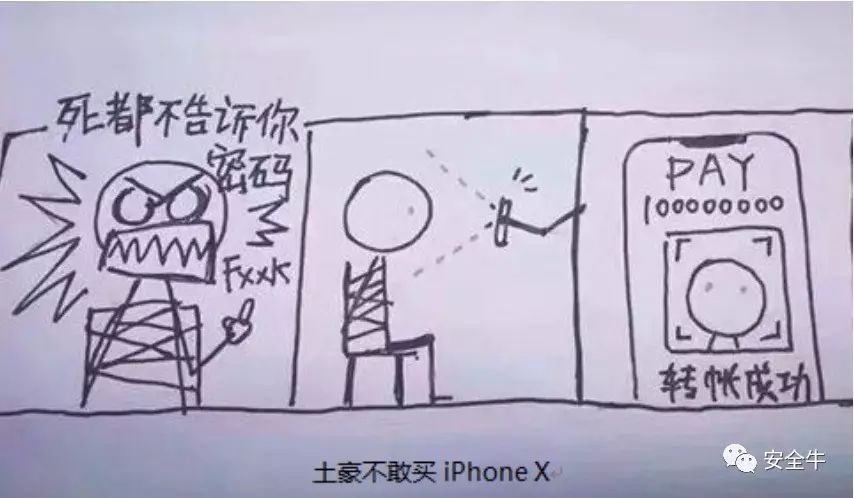 死都不告诉你
密码
Fxxk
PAY
100000000
转帐成功
土豪不敢买 iPhone X
安全牛